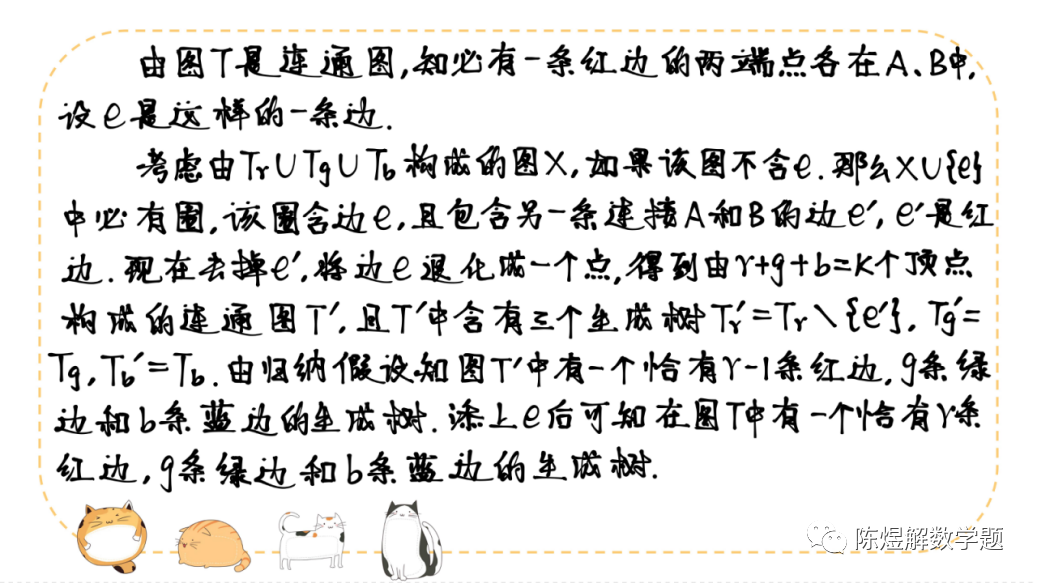 由图T是连通图,知必有一条红边的两端点各在A、B中,
设e是这样的一条边.
考虑由Tr∪Tg∪Tb构成的图X,如果该图不含e.那么X∪{e}
中必有圈,该圈含边e,且包含另一条连接A和B的边e′,e′是红
边.现在去掉e′,将边e退化成一个点,得到由r+g+b=k个顶点
构成的连通图T′,且T′中含有三个生成树Tr′=Tr\{e′},Tg′=
Tg,Tb′=Tb.由归纳假设知图T′中有一个恰有r-1条红边,g条绿
边和b条蓝边的生成树.添上e后可知在图T中有一个恰有r条
红边,g条绿边和b条蓝边的生成树.
陈煜解数学题